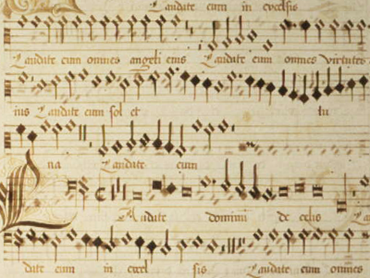 Laudate eum in excelsis
Laudate eum omnes angeli eius Laudate eum omnes virtutes
ius Laudate eum sol et lu
na Laudate eum
Laudate domini de celis La
date eum in excel sis Laudate eum omnes